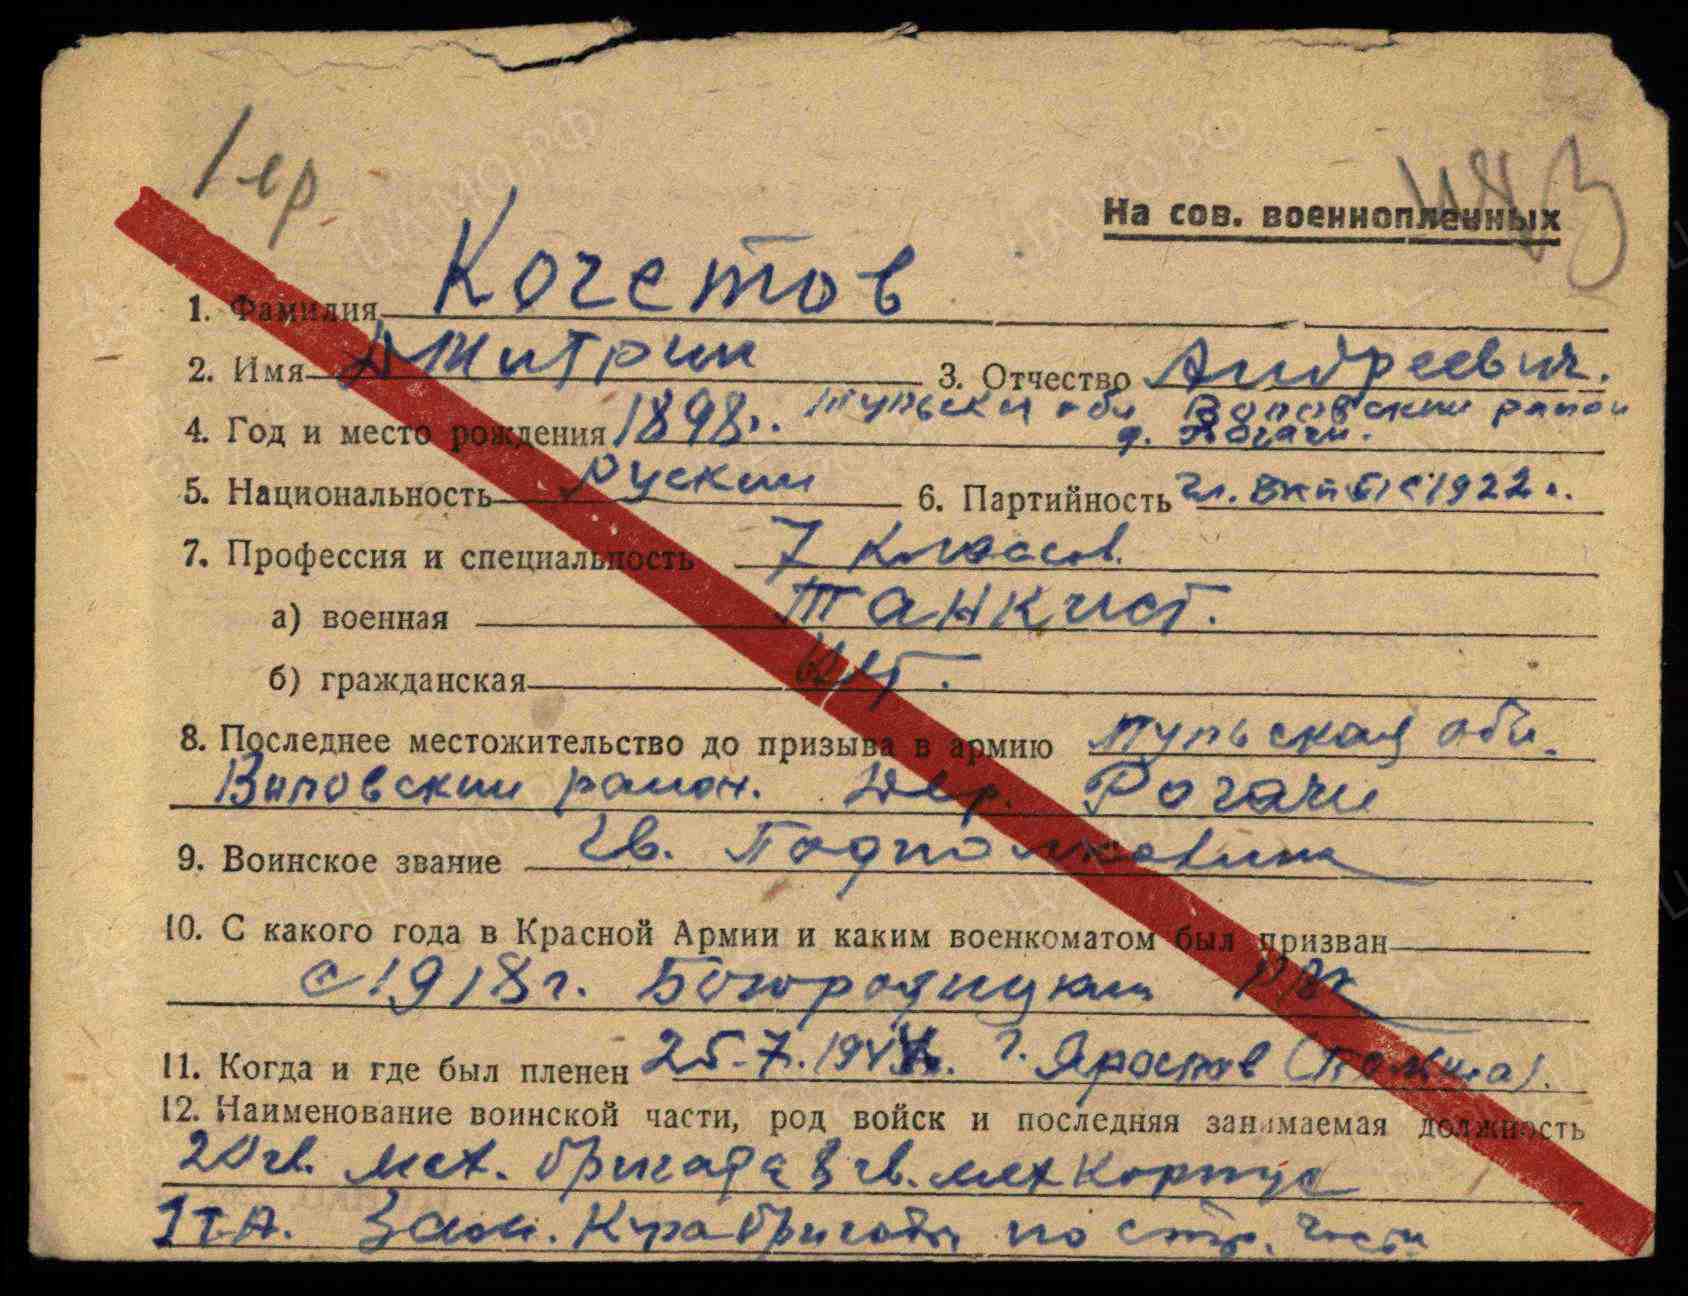 1 ер.
На сов. военнопленных
1. Фамилия Кочетов
2. Имя Дмитрий 3. Отчество Андреевич.
4. Год и место рождения 1898г. Тульская обл. Воловский район
д. Рогачи.
5. Национальность Руский 6. Партийность чл. ВКП(б) с 1922 г.
7. Профессия и специальность 7 классов.
а) военная Танкист.
б) гражданская нет.
8. Последнее местожительство до призыва в армию Тульская обл.
Воловский район. дер. Рогачи
9. Воинское звание Гв. Подполковник
10. С какого года в Красной Армии и каким военкоматом был призван
с 1918 г. Богородицким РВК
11. Когда и где был пленен 25.7.1944г. г. Ярослав (Польша).
12. Наименование воинской части, род войск и последняя занимаемая должность
20 гв. мех. бригада 8 гв. мех корпус
1 т.А. Зам. К-ра бригады по стр. части